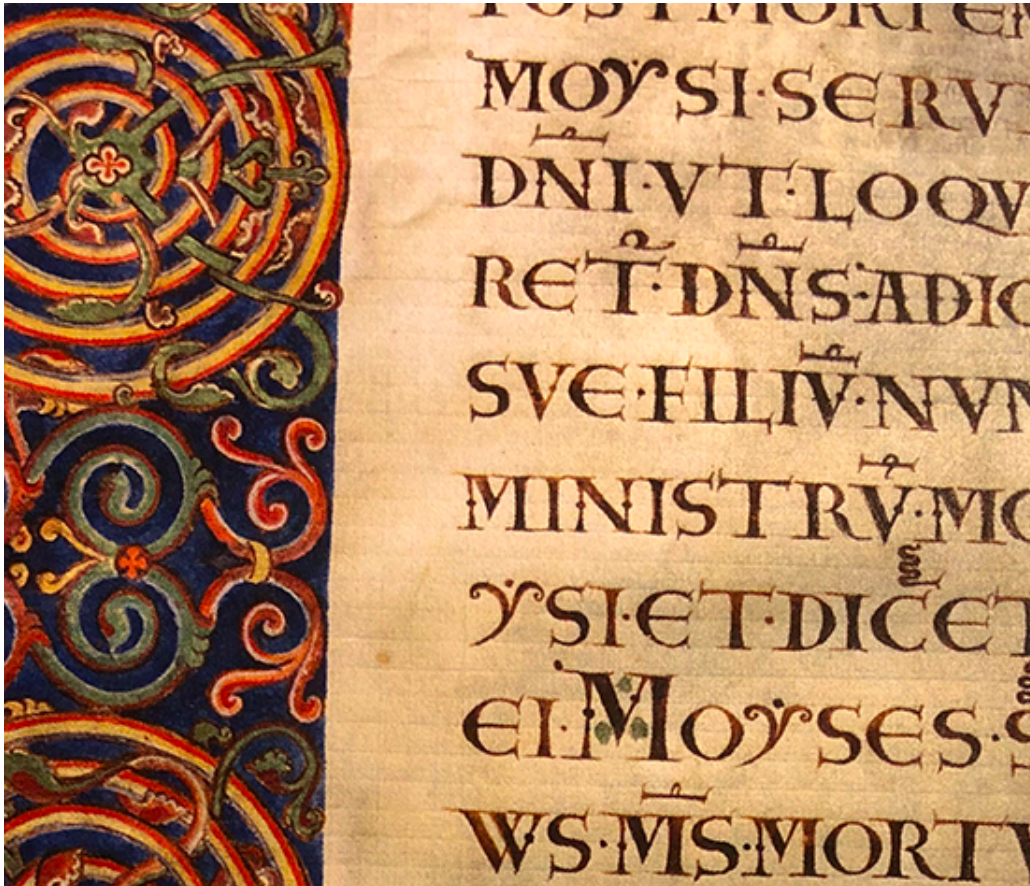 POST MORTEM
MOYSI·SERV
DN̄I·VT·LOQV
RET̄·DN̄S·ADIO
SVE·FILIV̄·NVN
MINISTRV̄·MO
YSI·ET·DIC̄ET
EI·MOYSES·S
WS·M̄S·MORTV